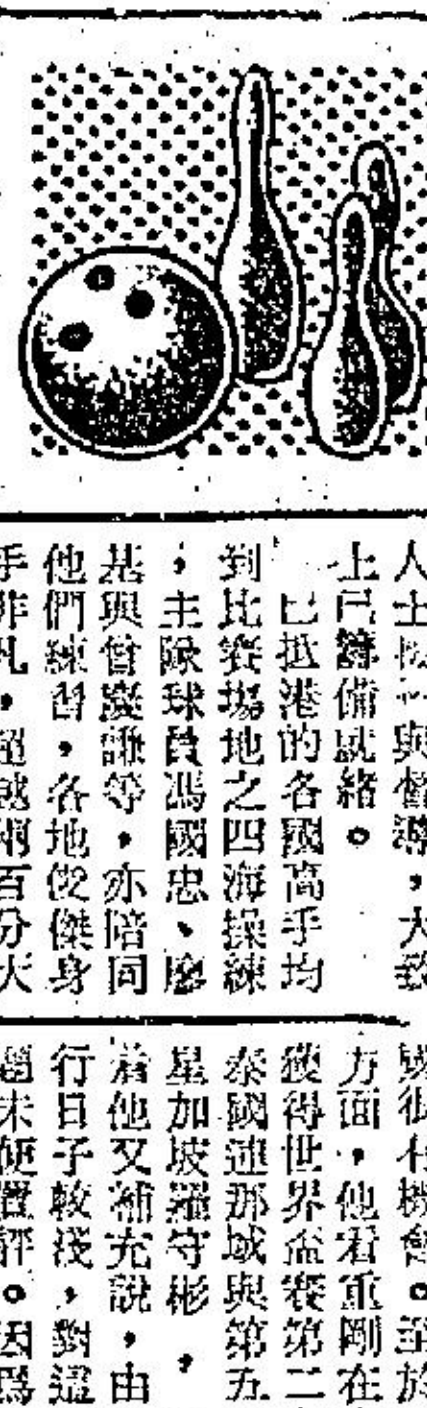 人士 與督導，大致
上已籌備就緒。
已抵港的各國高手均
到比賽場地之四海操練
，主隊球員馮國忠、廖
基與曾慶謙等，亦陪同
他們練習，各地俊傑身
手非凡，超越兩百分大
很有機會。至於
方面，他看重剛在
獲得世界盃賽第二
泰國連那域與第五
星加坡羅守彬，
着他又補充說，由
行日子較淺，對這
題未便置評。因爲